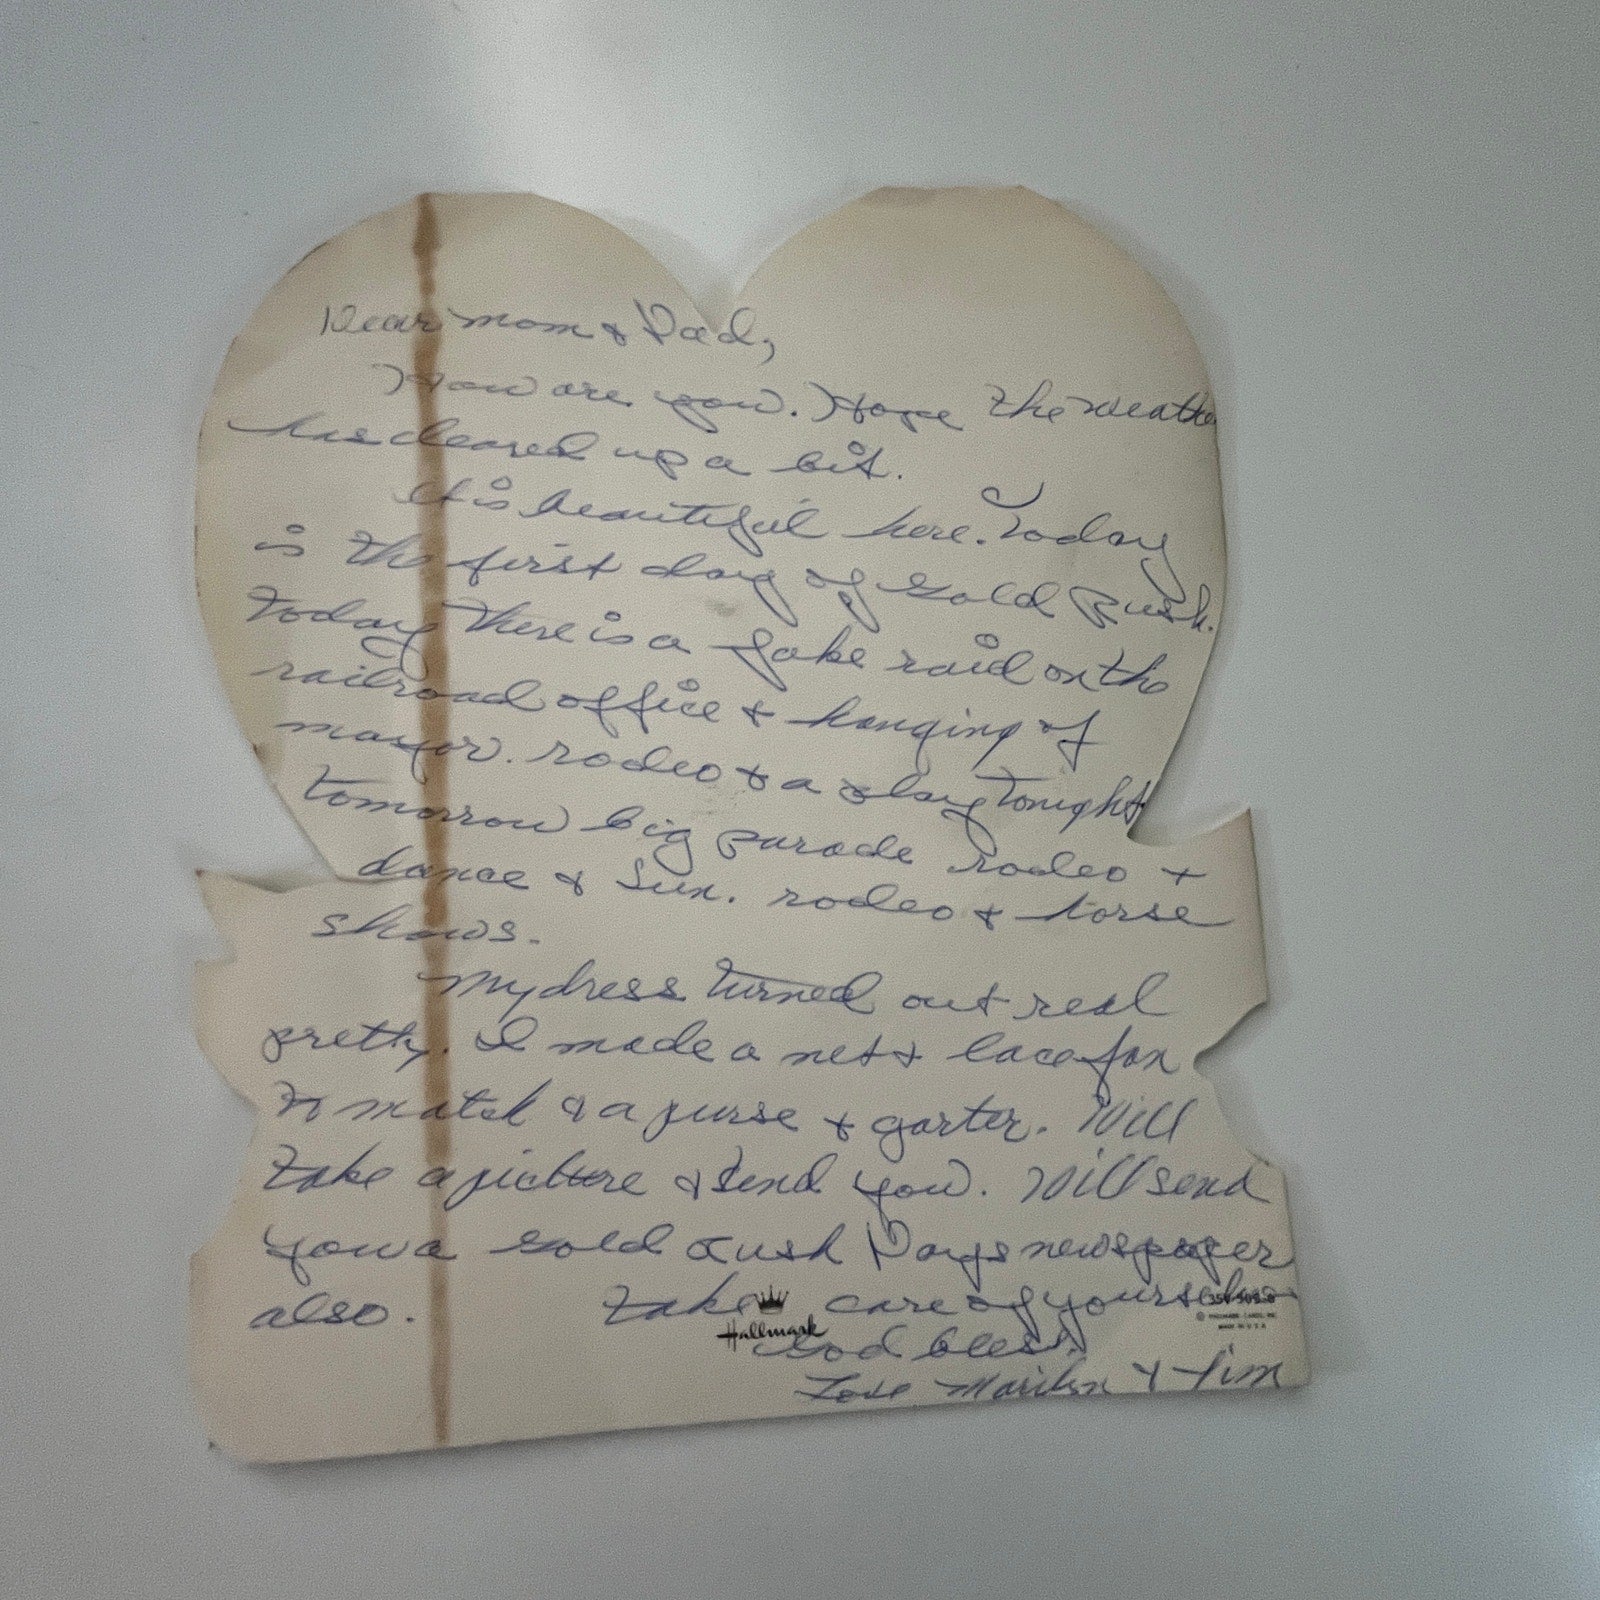 Dear mom & Dad,
How are you. Hope the weather
has cleared up a bit.
It is beautiful here. Today
is the first day of Gold Rush.
Today there is a fake raid on the
railroad office & hanging of
mayor. rodeo & a play tonight
tomorrow big parade rodeo &
dance & Sun. rodeo & horse
shows.
My dress turned out real
pretty. I made a net & lace fan
to match & a purse & garter. Will
take a picture & send you. Will send
you a Gold Rush Days newspaper
also. take care of yourselves
Hallmark
God bless.
Love Marilyn & Jim
MADE IN U.S.A.